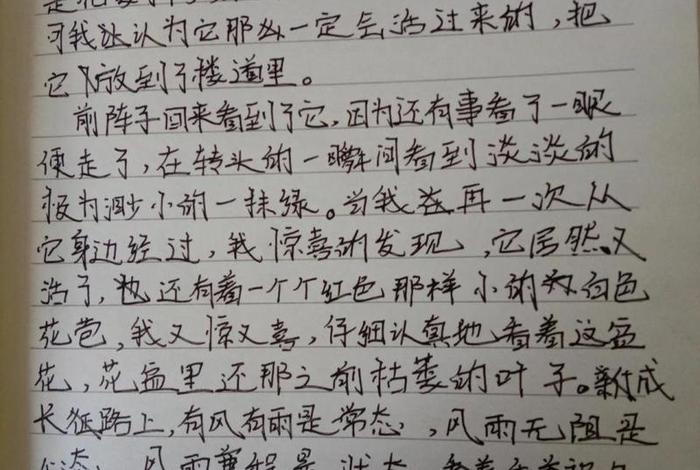 可我还认为它那么一定会活过来的，把
它放到了楼道里。
前阵子回来看到了它，因为还有事看了一眼
便走了，在转头的一瞬间看到淡淡的
极为渺小的一抹绿。当我在再一次从
它身边经过，我惊喜的发现，它居然又
活了，也还有着一个个红色那样小的白色
花苞，我又惊又喜，仔细认真地看着这盆
花，花盆里还那之前枯萎的叶子。新成
长征路上，有风有雨是常态，风雨无阻是
心态，风雨兼程是状态，